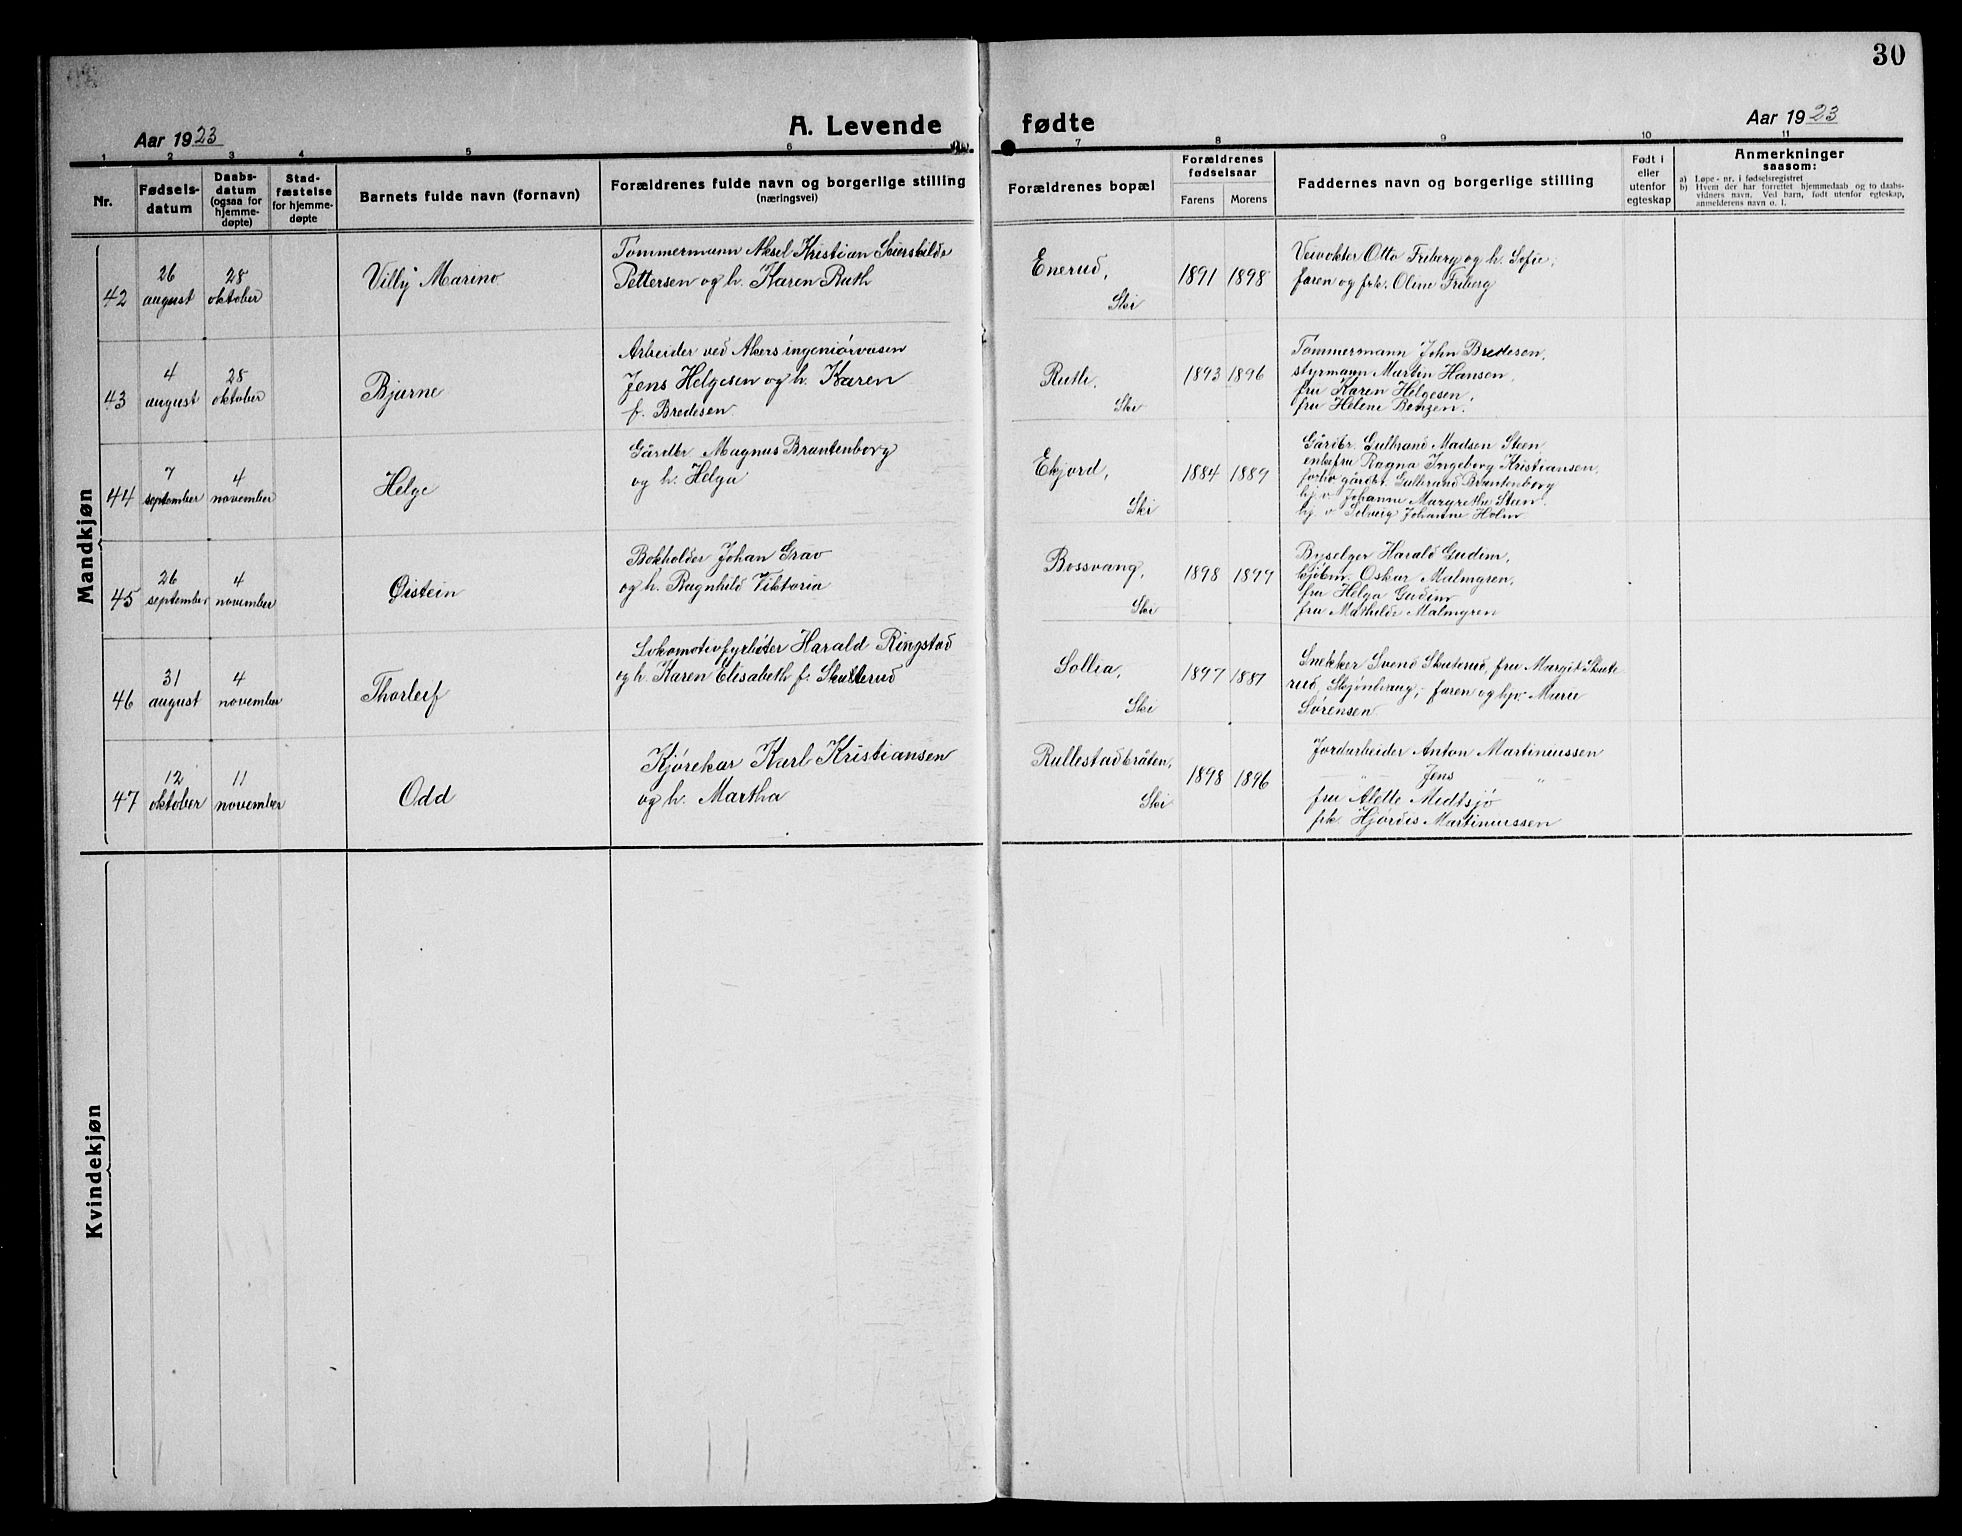 30
Aar 1923
A. Levende
fødte
Aar 1923
1 2 3 4 5 6 7 8 9 10 11
Nr.
Fødsels-
datum
Daabs-
datum
(ogsaa for
hjemme-
døpte)
Stad-
fæstelse
for hjemme-
døpte
Barnets fulde navn (fornavn)
Forældrenes fulde navn og borgerlige stilling
(næringsvei)
Forældrenes bopæl
Forældrenes
fødselsaar
Farens Morens
Faddernes navn og borgerlige stilling
Født i
eller
utenfor
egteskap
Anmerkninger
saasom:
a) Løpe-nr. i fødselsregistret
b) Hvem der har forrettet hjemmedaab og to daabs-
vidners navn. Ved barn, født utenfor egteskap,
anmelderens navn o. l.
Mandkjøn
42
26
august
28
oktober
Villy Marino
Tømmermann Aksel Kristian
Pettersen og h. Karen Ruth
Enerud,
Ski
1891 1898
Veivokter Otto Friberg og h. Sofie;
faren og frk. Oline Friberg
43
4
august
28
oktober
Bjarne
Arbeider ved Akers ingeniørvæsen
Jens Helgesen og h. Karen
f. Bredesen
Ruth,
Ski
1893 1896
Tømmermann John Bredesen,
styrmann Martin Hansen,
fru Karen Helgesen,
fru Helene Benzen.
44
7
september
4
november
Helge
Gårdbr Magnus Brantenborg
og h. Helga
Ekjord,
Ski
1884 1889
Gårdbr. Gulbrand Madsen Steen
enkefru Ragna Ingeborg Kristiansen,
forhv gårdbr. Gulbrand Brantenborg
hj. v. Johanne Margrethe Steen.
hj. v. Solveig Johanne Holm
45
26
september
4
november
Øistein
Bokholder Johan Grav
og h. Ragnhild Viktoria
Bossvang,
Ski
1898 1899
Byselger Harald Gudim,
kjøbm. Oskar Malmgren,
fru Helga Gudim
fru Mathilde Malmgren
46
31
august
4
november
Thorleif
Lokomotivfyrbøter Harald Ringstad
og h. Karen Elisabeth f. Skuterud
Sollia,
Ski
1897 1887
Snekker Svend Skuterud, fru Margit Skute
rud, faren og hjv. Marie
Sørensen
47
12
oktober
11
november
Odd
Kjørekar Karl Kristiansen
og h. Martha
Rullestadbråten,
Ski
1898 1896
Jordarbeider Anton Martinussen
— " — Jens — " —
fru Alette Midtsjø
frk. Hjørdis Martinussen
Kvindekjøn